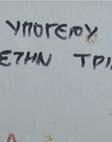 ΥΠΟΓΕΙΟΥ
ΣΤΗΝ ΤΡΙ